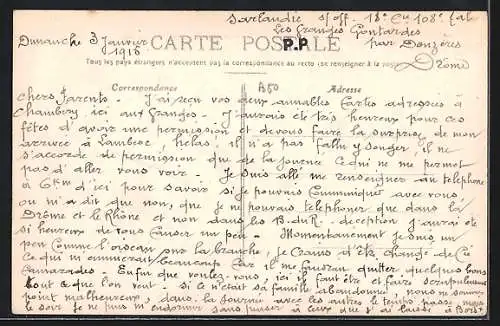 Sarlandie s/off. 18e Cie 108e tal
Les Granges Gontardes
Dimanche 3 Janvier
1916
CARTE POSTALE
P.P.
par Donzères
Drôme
Tous les pays étrangers n'acceptent pas la correspondance au recto (se renseigner à la poste)
Correspondance
B50
Adresse
Chers Parents. J'ai reçu vos deux aimables cartes adressées à
Chambéry ici aux Granges. J'aurais été très heureux pour ces
fêtes d'avoir une permission et devous faire la surprise de mon
arrivée à Lambesc, hélas! il n'a pas fallu y songer, il ne
s'accorde de permission que de la journée ce qui ne me permet
pas d'aller vous voir. Je suis allé me renseigner au téléphone
à 6km d'ici pour savoir si je pouvais communiquer avec vous
on m'a dit que non, que je ne pouvais téléphoner que dans la
Drôme et le Rhône et non dans les B. du R. déception j'aurai été
si heureux de vous causer un peu. Momentanément je suis un
peu comme l'oiseau sur la branche, je crains d'être changé de Cie
ce qui m'ennuierait beaucoup car il me faudrait quitter quelques bons
camarades. Enfin que voulez-vous, ici il faut être et faire scrupuleusement
tout ce que l'on veut. Si ce n'était sa famille abandonnée, nous ne serions
point malheureux, dans la journée avec les autres le temps passe mais
le soir je ne puis m'endormir sans penser à ceux que j'ai laissé à